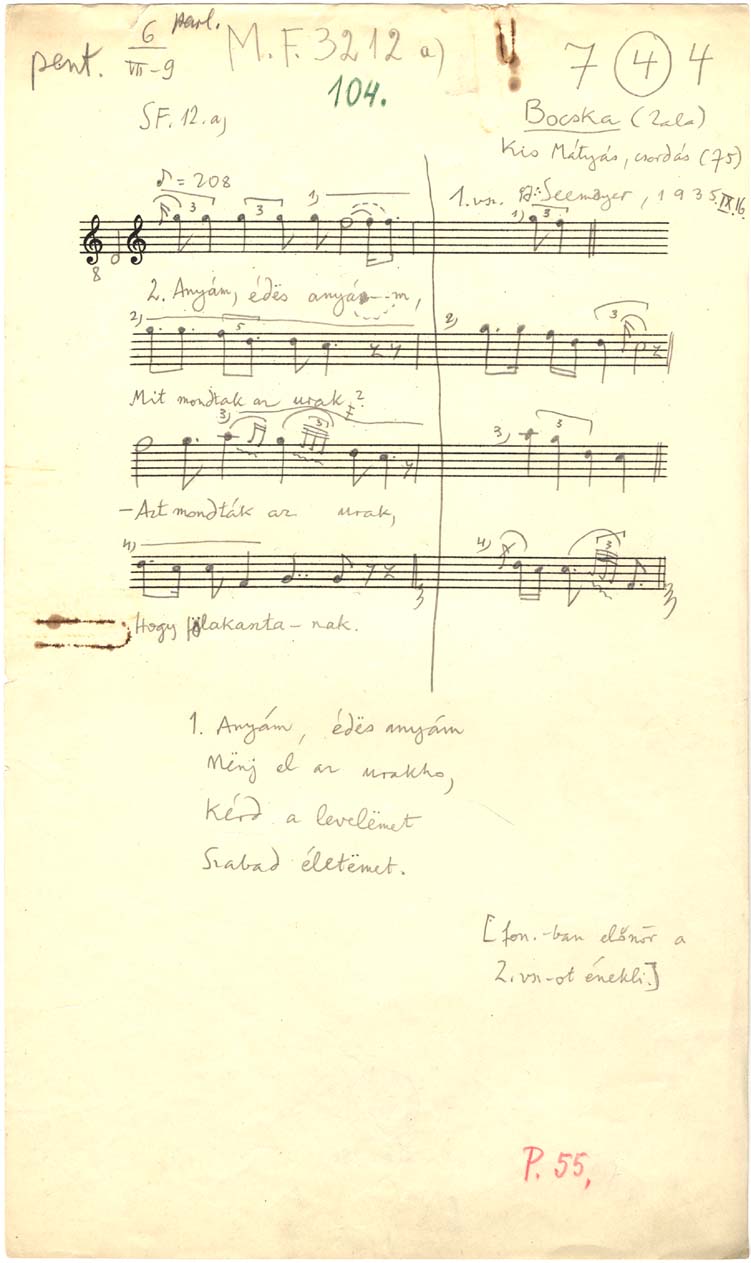 pent. 6/VII-9 parl. M.F. 3212 a) 7 4 4
104.
SF. 12. a,
Bocska (Zala)
Kis Mátyás, csordás (75)
♪ = 208
1. vsz. Seemayer, 1935. IX. 16.
3 3 1) 1) 3
8
2. Anyám, édës anyám,
2) 5 2) 3
Mit mondtak az urak?
3) 3 3) 3
– Azt mondták az urak,
4) 4) 3
Hogy fölakasztanak.
1. Anyám, édës anyám
Mënj el az urakho,
Kérd a levelëmet
Szabad életëmet.
[fon.-ban először a
2. vsz-ot énekli.]
P. 55,